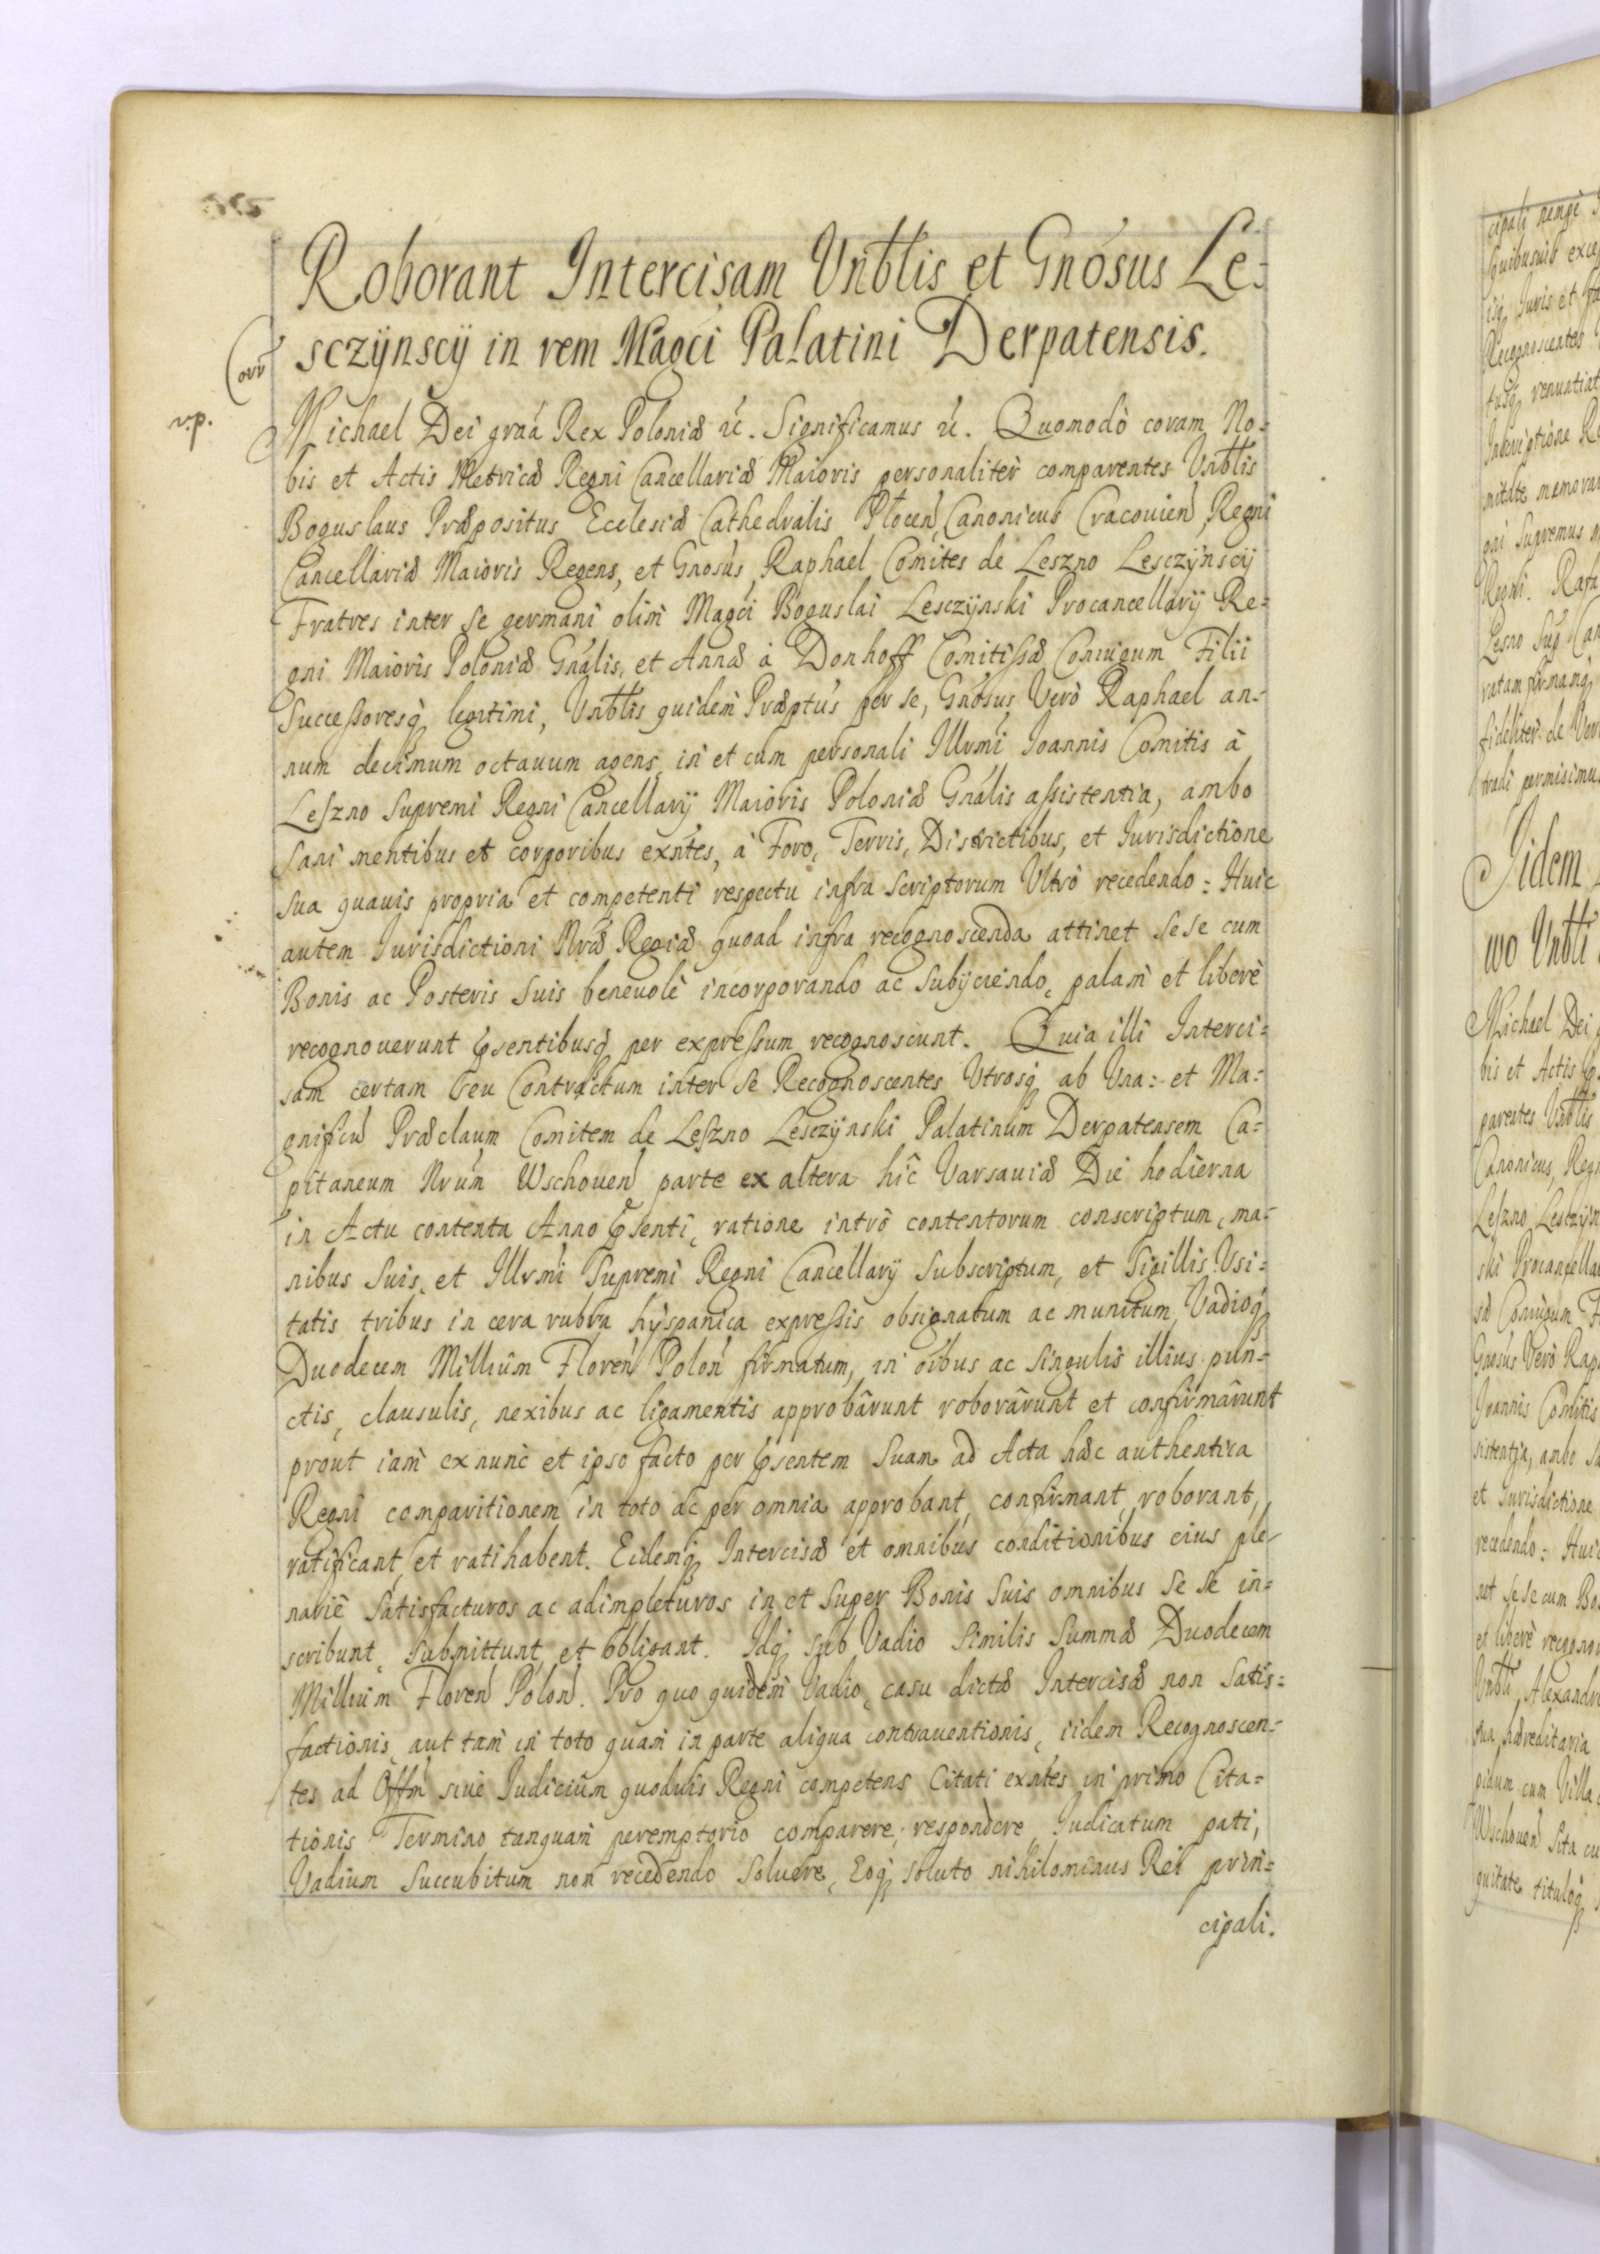 Roborant Intercisam Vnblis et Gnósus Le-
sczÿnscÿ in rem Magci Palatini Derpatensis.
Corr
v.p.
Michael Dei gráá Rex Poloniæ &c. Significamus &c. Quomodò coram No-
bis et Actis Metricæ Regni Cancellariæ Maioris personalitèr comparentes Vnblis
Boguslaus Præpositus Ecclesiæ Cathedralis Plocen, Canonicus Cracouien, Regni
Cancellariæ Maioris Regens, et Gnósus Raphael Comites de Leszno Lesczÿnscÿ
Fratres inter se germani olim Magci Boguslai Lesczÿnski Procancellarÿ Re-
gni Maioris Poloniæ Gnális, et Annæ à Donhoff Comitissæ Coniugum Filii
Successoresq legitimi, Vnblis quidem Præptus per se, Gnósus Verò Raphael an-
num decimum octauum agens, in et cum personali Illrmi Joannis Comitis à
Leszno Supremi Regni Cancellarÿ Maioris Poloniæ Gnális assistentia, ambo
Sani mentibus et corporibus exntes, à Foro, Terris, Districtibus, et Iurisdictione
sua quauis propria et competenti respectu infra scriptorum Vltrò recedendo: Huic
autem Iurisdictioni Nræ Regiæ quoad infra recognoscenda attinet sese cum
Bonis ac Posteris suis beneuolè incorporando ac subÿciendo, palam et liberè
recognouerunt psentibusq per expressum recognoscunt. Quia illi Interci-
sam certam seu Contractum inter se Recognoscentes Vtrosq ab Vna: et Ma-
gnificu Præclaum Comitem de Leszno Lesczÿnski Palatinum Derpatensem Ca-
pitaneum Nrum Wschouen parte ex altera hîc Varsauiæ Die hodierna
in Actu contenta Anno psenti, ratione intrò contentorum conscriptum, ma-
nibus suis, et Illrmi Supremi Regni Cancellarÿ subscriptum, et Sigillis Vsi-
tatis tribus in cera rubra hÿspanica expressis obsignatum ac munitum, Vadioq
Duodecem Millium Floren Polon firmatum, in oibus ac singulis illius pun-
ctis, clausulis, nexibus ac ligamentis approbârunt roborârunt et confirmârunt
prout iam ex nunc et ipso facto per psentem Suam ad Acta hæc authentica
Regni comparitionem in toto ac per omnia approbant, confirmant, roborant,
ratificant, et ratihabent. Eidemq Intercisæ et omnibus conditionibus eius ple-
nariè satisfacturos ac adimpleturos in et super Bonis suis omnibus se se in-
scribunt, submittunt, et obligant. Idq sub Vadio similis Summæ Duodecem
Millium Floren Polon. Pro quo quidem Vadio, casu dictæ Intercisæ non satis-
factionis, aut tam in toto quam in parte aliqua contrauentionis, iidem Recognoscen-
tes ad Offm siue Judicium quoduis Regni competens Citati exntes in primo Cita-
tionis Termino tanquam peremptorio comparere, respondere, Judicatum pati,
Vadium succubitum non recedendo soluere, Eoq soluto nihilominus Rei prin-
cipali.
Iidem
wo Vnbli
Michael Dei
bis et Actis
parentes Vnblis